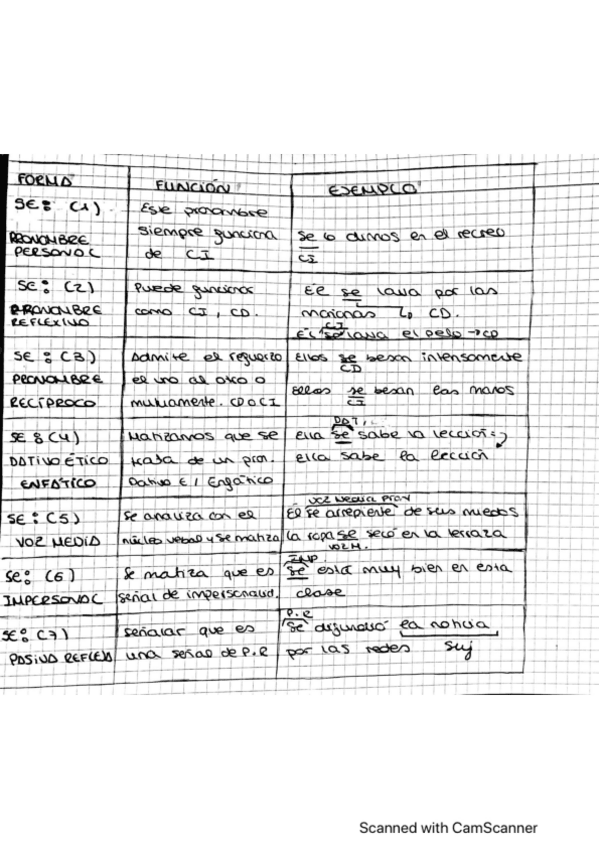 FORMA FUNCIÓN EJEMPLO
SE: (1)
PRONOMBRE
PERSONAL
Este pronombre
siempre funciona
de CI
Se lo dimos en el recreo
CI
SE: (2)
PRONOMBRE
REFLEXIVO
Puede funcionar
como CI, CD.
Él se lava por las
mañanas ↳ CD.
CI
Él se lava el pelo → CD
SE: (3)
PRONOMBRE
RECÍPROCO
Admite el refuerzo
el uno al otro o
mutuamente. CD o CI
Ellos se besan intensamente
CD
Ellos se besan las manos
CI
SE: (4)
DATIVO ÉTICO
ENFÁTICO
Matizamos que se
trata de un pron.
Dativo E / Enfático
DAT.
Ella se sabe la lección
ella sabe la lección
SE: (5)
VOZ MEDIA
Se analiza con el
núcleo verbal y se matiza
VOZ Media PRON
Él se arrepiente de sus miedos
La ropa se secó en la terraza
VOZ M.
SE: (6)
IMPERSONAL
Se matiza que es
señal de impersonalid.
IMP
Se está muy bien en esta
clase
SE: (7)
PASIVA REFLEJA
Señalar que es
una señal de P.R
P.R
Se difundió la noticia
por las redes Suj
Scanned with CamScanner